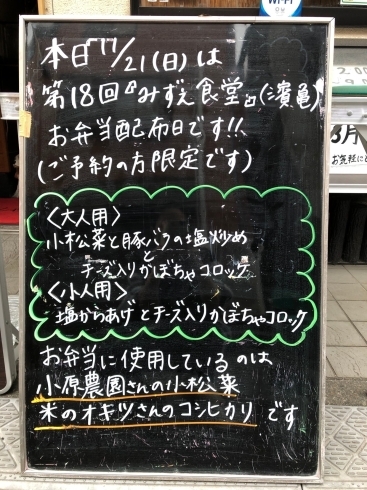 Wi-Fi
本日11/21(日)は
第18回『みずえ食堂』(濱亀)
お弁当配布日です!!
(ご予約の方限定です)
〈大人用〉
小松菜と豚バラの塩炒め
と
チーズ入りかぼちゃコロッケ
〈小人用〉
塩からあげとチーズ入りかぼちゃコロッケ
お弁当に使用しているのは
小原農園さんの小松菜
米のオキツさんのコシヒカリです
月
お気軽に